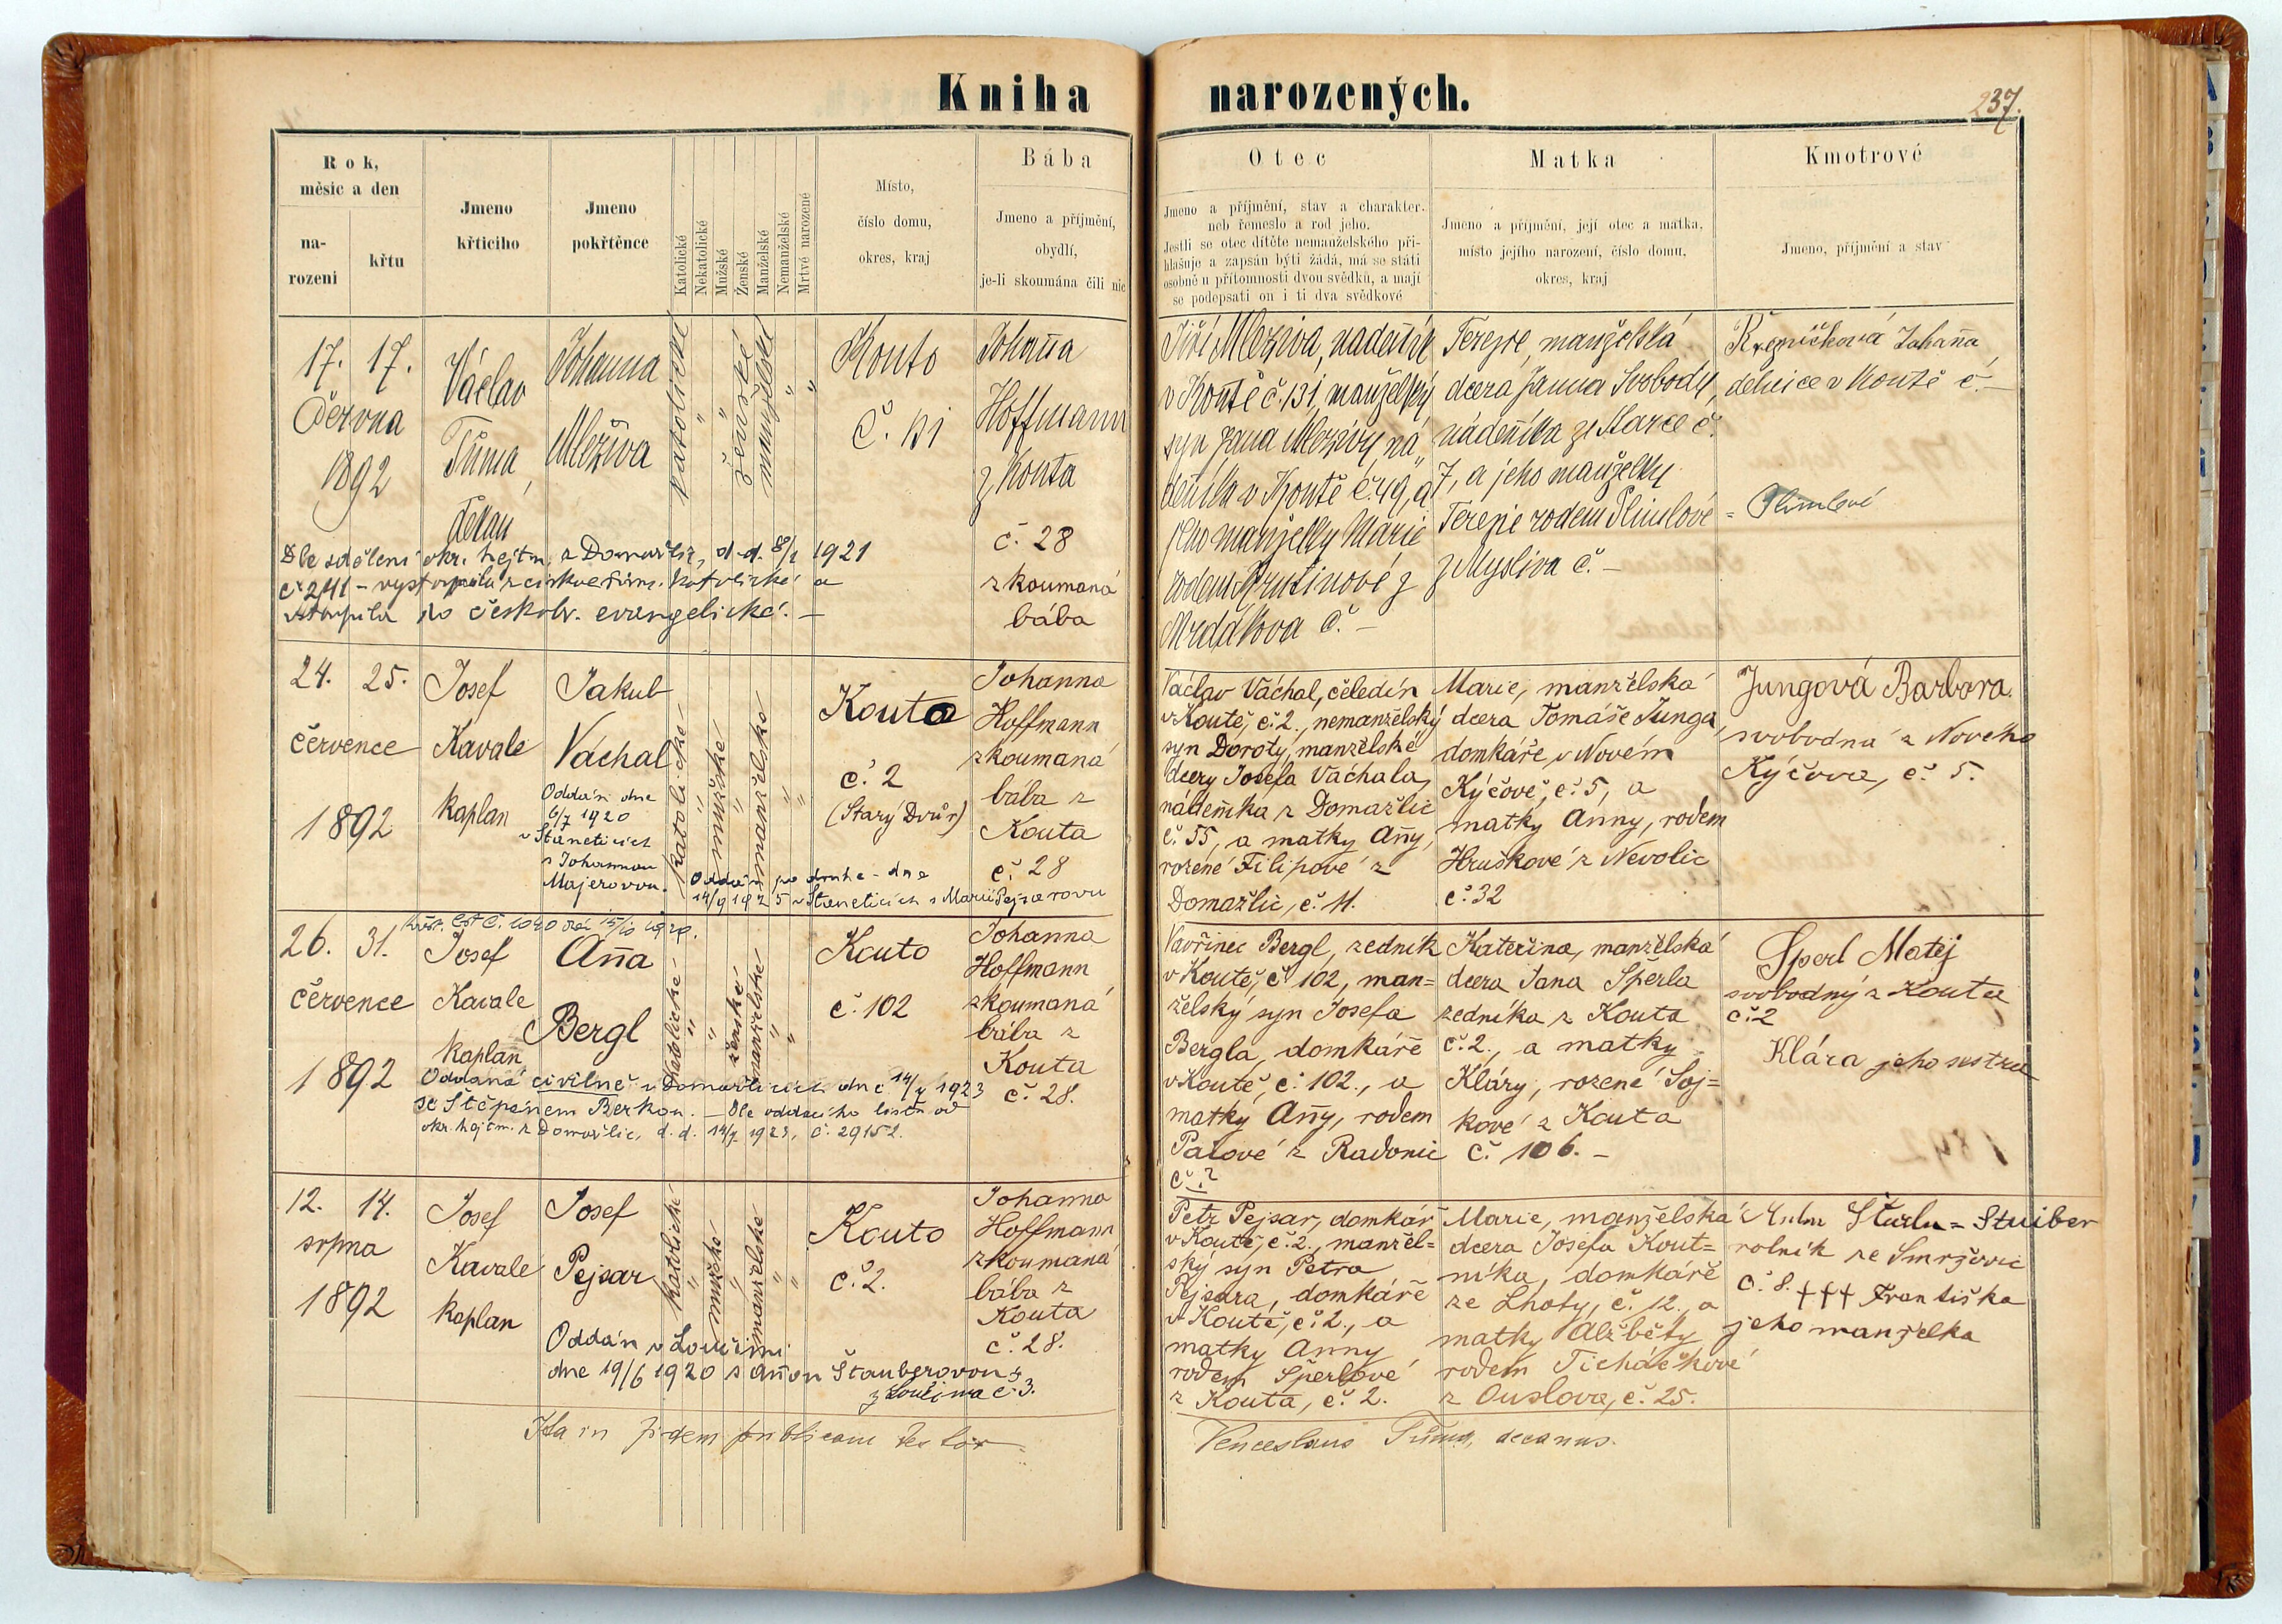 Kniha narozených.
237.
Rok,
měsíc a den
na-
rozeni
křtu
Jmeno
křticího
Jmeno
pokřtěnce
Katolické
Nekatolické
Mužské
Ženské
Manželské
Nemanželské
Mrtvě narozené
Místo,
číslo domu,
okres, kraj
Bába
Jmeno a příjmění,
obydlí,
je-li skoumána čili nic
Otec
Jmeno a příjmění, stav a charakter.
neb řemeslo a rod jeho.
Jestli se otec dítěte nemanželského při-
hlašuje a zapsán býti žádá, má se státi
osobně u přítomnosti dvou svědků, a mají
se podepsati on i ti dva svědkové
Matka
Jmeno a příjmění, její otec a matka,
místo jejího narození, číslo domu,
okres, kraj
Kmotrové
Jmeno, příjmění a stav
17. 17.
Června
1892
Václav
Tůma,
děkan
Johanna
Mleziva
katolické
"
"
ženské
manželské
"
"
Kouto
č. 131
Johan̄a
Hoffmann
z Kouta
č. 28
zkoumaná
bába
Dle sdělení okr. hejtm. z Domažlic, d. d. 8/2 1921
č. 241 - vystoupila z církve řím. katolické a
vstoupila do českobr. evangelické. -
Jiří Mleziva, nádeník
v Koutě č. 131, manželský
syn Jana Mlezivy, ná
deníka v Koutě č. 49, a
jeho manželky Marie
rodem Krutinové z
Mrdákova č. -
Terezie, manželská
dcera Jana Svobody,
nádeníka ze Starce č.
7, a jeho manželky
Terezie rodem Plimlové = Plimlové
z Mysliva č. -
Řezníčková Johan̄a,
dělnice v Koutě č. -
24. 25.
července
1892
Josef
Kavale
kaplan
Jakub
Váchal
Oddán dne
6/7 1920
v Staněticích
s Johannou
Majerovou.
Oddán po druhé - dne
14/9 1925 v Staněticích s Marií Pejsarovou
katolické
"
mužské
"
manželské
"
"
Kouto
č. 2
(Starý Dvůr)
Johanna
Hoffmann
zkoumaná
bába z
Kouta
č. 28
Václav Váchal, čeledín
v Koutě, č. 2., nemanželský
syn Doroty, manželské
dcery Josefa Váchala,
nádeníka z Domažlic
č. 55, a matky An̄y,
rozené Filipové z
Domažlic, č. 11.
Marie, manželská
dcera Tomáše Junga,
domkáře v Novém
Kýčově, č. 5, a
matky Anny, rodem
Hruškové z Nevolic
č. 32
Jungová Barbora.
svobodná z Nového
Kýčova, č. 5.
Křest. list č. 1040 dne 15/10 1939.
26. 31.
července
1892
Josef
Kavale
kaplan
An̄a
Bergl
katolické
"
"
ženské
manželské
"
Kouto
č. 102
Johanna
Hoffmann
zkoumaná
bába z
Kouta
č. 28.
Oddaná civilně v Domažlicích dne 14/7 1923
se Štěpánem Berkou. - Dle oddacího listu od
okr. hejtm. z Domažlic, d. d. 14/7 1923, č. 29152.
Vavřinec Bergl, zedník
v Koutě, č. 102, man=
želský syn Josefa
Bergla, domkáře
v Koutě, č. 102., a
matky An̄y, rodem
Palové z Radonic
č. ?
Kateřina, manželská
dcera Jana Šperla
zedníka z Kouta
č. 2., a matky
Kláry, rozené Soj=
kové z Kouta
č. 106. -
Šperl Matěj
svobodný z Kouta
č. 2
Klára jeho sestra
12. 14.
srpna
1892
Josef
Kavale
kaplan
Josef
Pejsar
katolické
"
mužské
"
manželské
"
"
Kouto
č. 2.
Johanna
Hoffmann
zkoumaná
bába z
Kouta
č. 28.
Oddán v Loučimi
dne 19/6 1920 s An̄ou Štauberovou
z Loučima č. 3.
Petr Pejsar, domkář
v Koutě, č. 2., manžel=
ský syn Petra
Pejsara, domkáře
v Koutě, č. 2., a
matky Anny
rodem Šperlové
z Kouta, č. 2.
Marie, manželská
dcera Josefa Kout=
níka, domkáře
ze Lhoty, č. 12., a
matky Alžběty
rodem Ticháčkové
z Ouslova, č. 25.
= Stuiber
rolník ze Smržovic
č. 8. +++ Františka
jeho manželka
Ita in fidem publicam testor
Venceslaus Tůma, decanus.